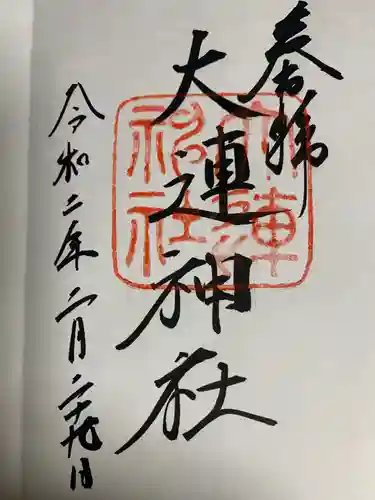 奉拝
大連神社
令和二年二月二十九日
大連
神社